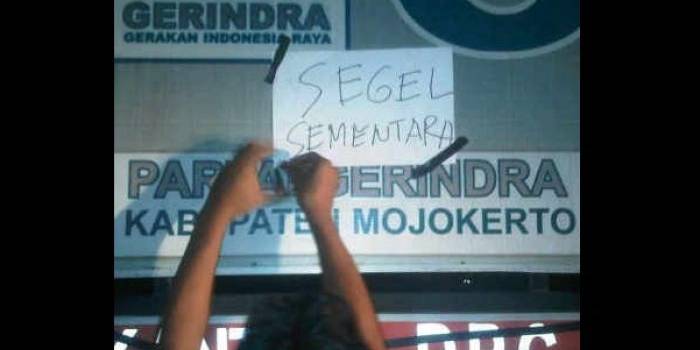 GERINDRA
GERAKAN INDONESIA RAYA
SEGEL
SEMENTARA
PARTAI GERINDRA
KABUPATEN MOJOKERTO